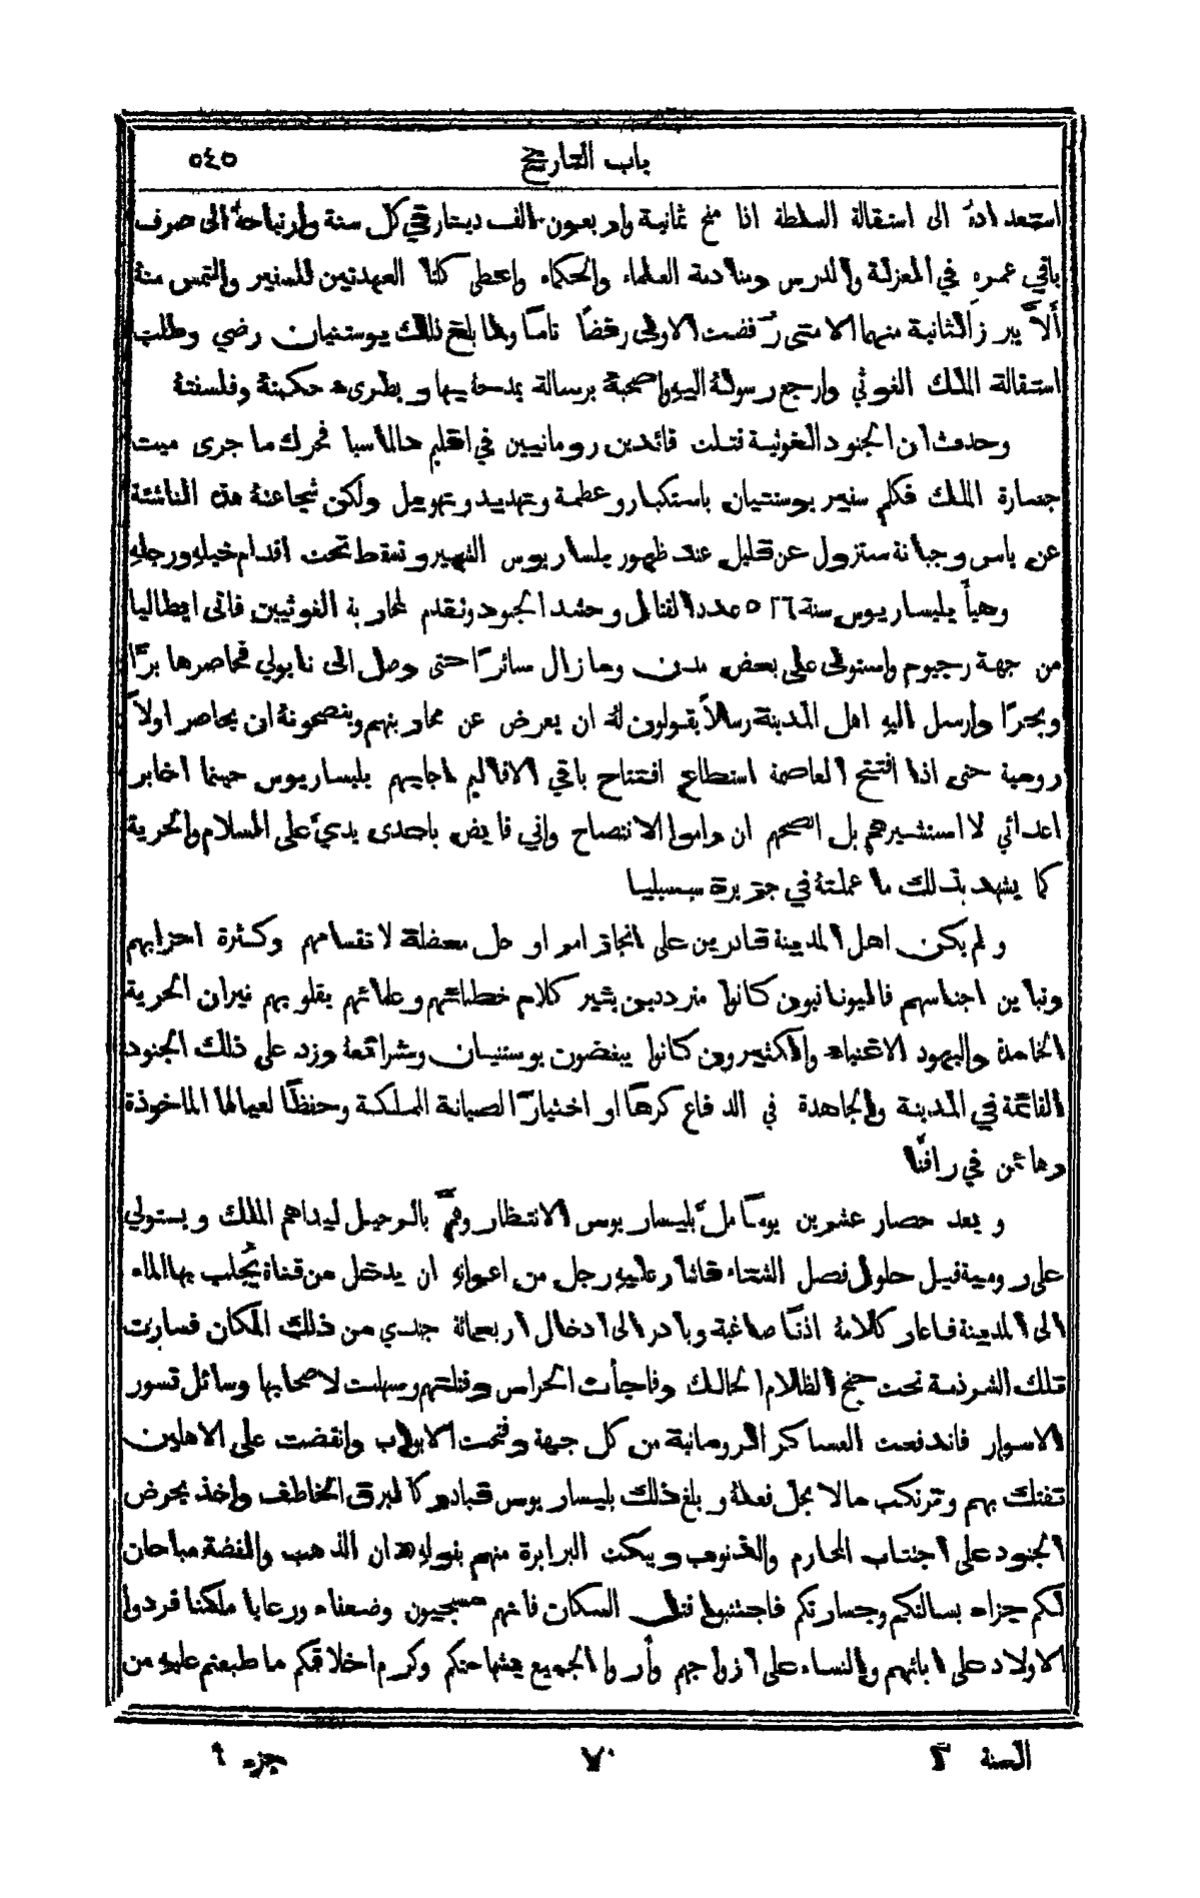 باب التاريخ ٥٤٥
استعدادهُ الى استقالة السلطة اذا منح ثمانية واربعون الف دينار في كل سنة وارتياحهُ الى صرف
باقي عمرهِ في العزلة والدرس ومنادمة العلماء والحكماء واعطى كلتا العهدتين للسفير والتمس منهُ
ألاَّ يبرز الثانية منهما الا متى رُفضت الاولى رفضًا تامًّا ولما بلغ ذلك يوستنيان رضي وطلب
استقالة الملك الغوثي وارجع رسولهُ اليهِ واصحبهُ برسالة يمدحهُ بها ويطرىء حكمتهُ وفلسفتهُ
وحدث ان الجنود الغوثية قتلت قائدين رومانيين في اقليم دالماسيا فحرك ما جرى ميت
جسارة الملك فكلم سفير يوستنيان باستكبار وعظمة وتهديد وتهويل ولكن شجاعتهُ هذه الناشئة
عن ياس وجبانة ستزول عن قليل عند ظهور بليساريوس الشهير وتسقط تحت اقدام خيلهِ ورجلهِ
وهيأَ بليساريوس سنة ٥٣٦ عدد القتال وحشد الجنود وتقدم لمحاربة الغوثيين فاتى ايطاليا
من جهة رجيوم واستولى على بعض مدن وما زال سائرًا حتى وصل الى نابولي فحاصرها برًّا
وبحرًا وارسل اليهِ اهل المدينة رسلاً يقولون لهُ ان يعرض عن محاربتهم وينصحونهُ ان يحاصر اولاً
رومية حتى اذا افتتح العاصمة استطاع افتتاح باقي الاقاليم اجابهم بليساريوس حينما اخابر
اعدائي لا استشيرهم بل انصحهم ان راموا الانتصاح واني قابض باحدى يديَّ على السلام والحرية
كما يشهد بذلك ما عملتهُ في جزيرة سيسيليا
ولم يكن اهل المدينة قادرين على انجاز امر او حل معضلة لانقسامهم وكثرة احزابهم
وتباين اجناسهم فاليونانيون كانوا مترددين يثير كلام خطبائهم وعلمائهم بقلوبهم نيران الحرية
الخامدة واليهود الاغنياء والاكثيرون كانوا يبغضون يوستنيان وشرائعهُ وزد على ذلك الجنود
القائمة في المدينة والمجاهدة في الدفاع كرهًا او اختيارًا لصيانة المملكة وحفظًا لعيالها الماخوذة
رهائن في رافنَّا
وبعد حصار عشرين يومًا ملَّ بليساريوس الانتظار وهمَّ بالرحيل ليداهم الملك ويستولي
على رومية قبل حلول فصل الشتاء فاشار عليهِ رجل من اعوانهِ ان يدخل من قناة يُجلب بها الماء
الى المدينة فاعار كلامهُ اذنًا صاغية وبادر الى ادخال اربعمائة جندي من ذلك المكان فسارت
تلك الشرذمة تحت جنح الظلام الحالك وفاجأت الحراس وقتلتهم وسهلت لاصحابها وسائل تسور
الاسوار فاندفعت العساكر الرومانية من كل جهة وفتحت الابواب وانقضت على الاهلين
تفتك بهم وترتكب ما لا يحل فعلهُ وبلغ ذلك بليساريوس فبادر كالبرق الخاطف واخذ يحرض
الجنود على اجتناب المحارم والذنوب ويبكت البرابرة منهم بقولهِ ان الذهب والفضة مباحان
لكم جزاء بسالتكم وجسارتكم فاجتنبوا قتل السكان فانهم مسيحيون وضعفاء ورعايا ملكنا فردوا
الاولاد على ابائهم والنساء على ازواجهم وأروا الجميع بشهامتكم وكرم اخلاقكم ما طبعتم عليهِ من
السنة ٢ ٧٠ جزء ٩